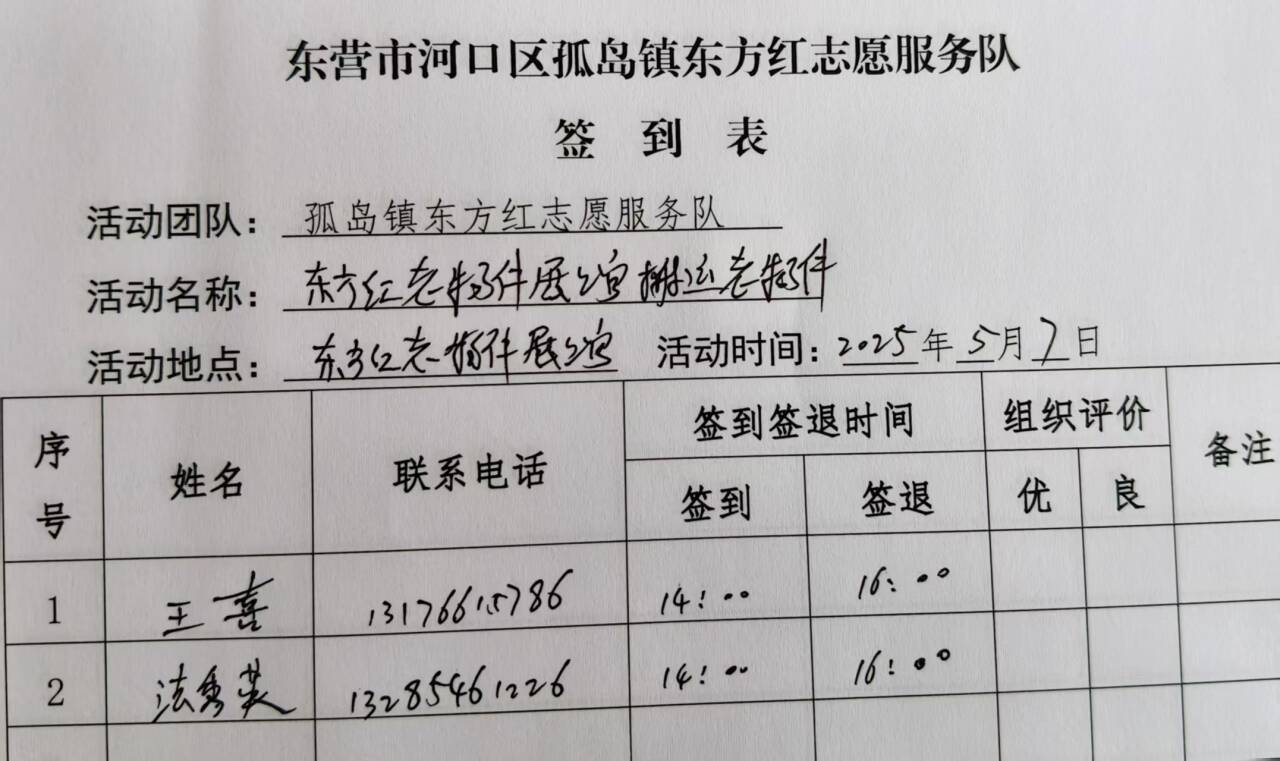 东营市河口区孤岛镇东方红志愿服务队
签 到 表
活动团队：孤岛镇东方红志愿服务队
活动名称：东方红老物件展览馆搬运老物件
活动地点：东方红老物件展览馆 活动时间：2025年5月7日
序号 姓名 联系电话 签到签退时间 组织评价 备注
签到 签退 优 良
1 王喜 13176615786 14:00 16:00
2 法秀英 13285461226 14:00 16:00